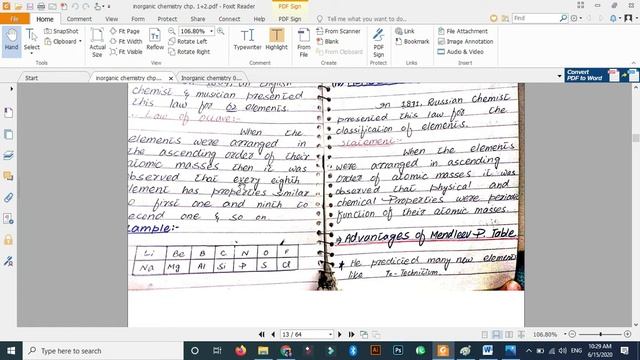 inorganic chemistry chp. 1+2.pdf - Foxit Reader
PDF Sign
File
Home
Comment
View
Form
Protect
Share
Help
PDF Sign
Tell me what you want to do...
Hand
Select
SnapShot
Clipboard
Actual Size
Fit Page
Fit Width
Fit Visible
Reflow
106.80%
Rotate Left
Rotate Right
Typewriter
Highlight
From Scanner
Blank
From Clipboard
Link
Bookmark
File Attachment
Image Annotation
Audio & Video
Start
inorganic chemistry chp...
Inorganic chemistry 0...
Convert
PDF to Word
chemist & musician presented
this law for 62 elements.
Law of Octaves:-
When the
elements were arranged in
the ascending order of their
atomic masses then it was
observed that every eighth
element has properties similar
first one and ninth to
second one & so on.
Example:-
Li Be B C N O F
Na Mg Al Si P S Cl
In 1871, Russian chemist
presented this law for the
classification of elements.
Statement:-
When the elements
were arranged in ascending
order of atomic masses it was
observed that physical and
chemical Properties were periodic
function of their atomic masses.
Advantages of Mendleev P. Table
* He predicted many new elements
like Tc - Technitium.
13 / 64
106.80%
Type here to search
ENG
10:29 AM
6/15/2020